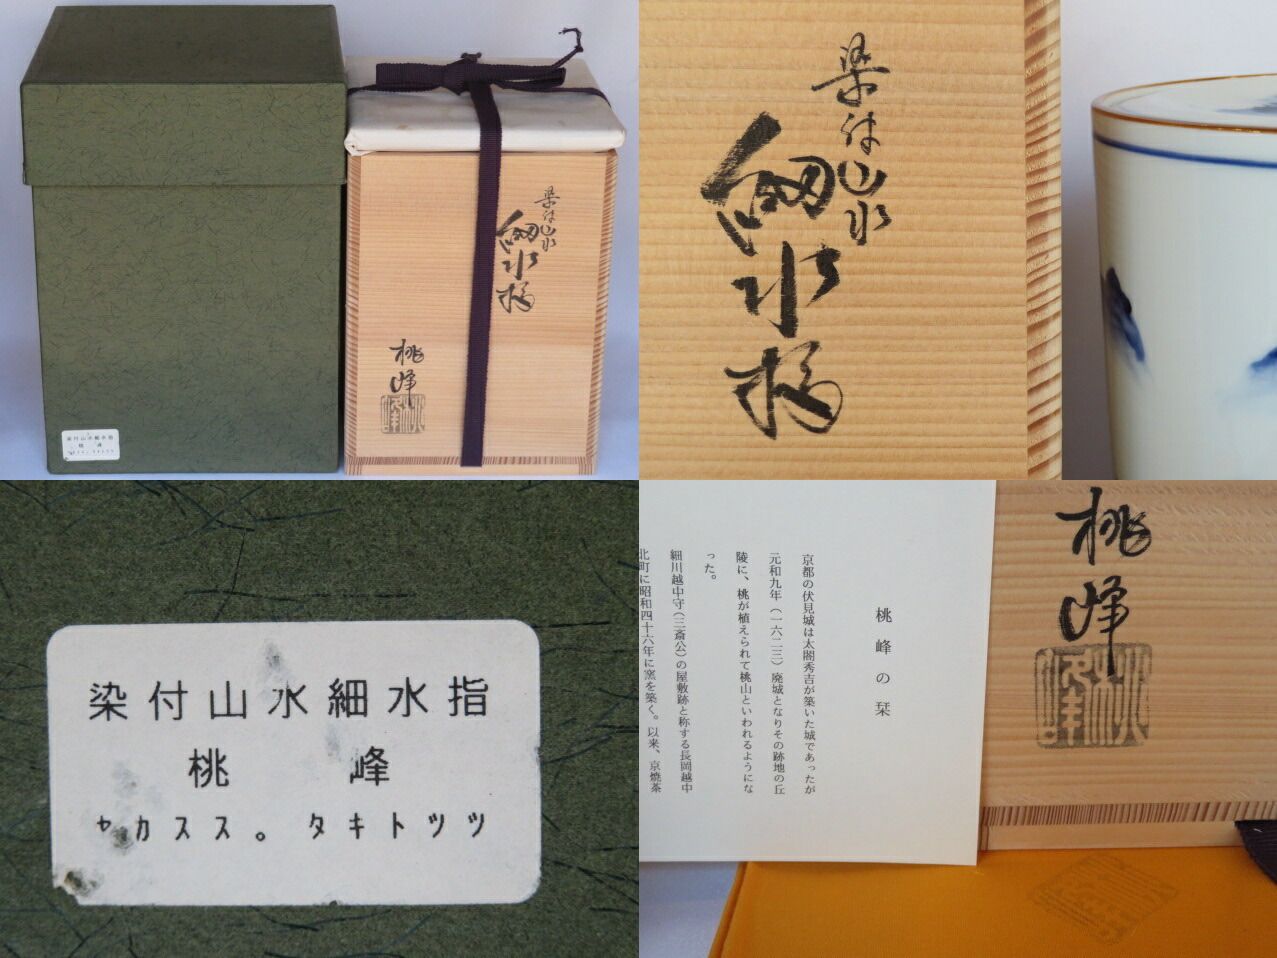 染付山水
細水指
桃峰
桃峰
染付山水細水指
桃 峰
染付山水
細水指
染付山水細水指
桃 峰
ヤカスス。タキトツツ
桃峰の栞
京都の伏見城は太閤秀吉が築いた城であったが
元和九年（一六二三）廃城となりその跡地の丘
陵に、桃が植えられて桃山といわれるようにな
った。
細川越中守（三斎公）の屋敷跡と称する長岡越中
北町に昭和四十六年に窯を築く。以来、京焼茶
桃峰
桃峰